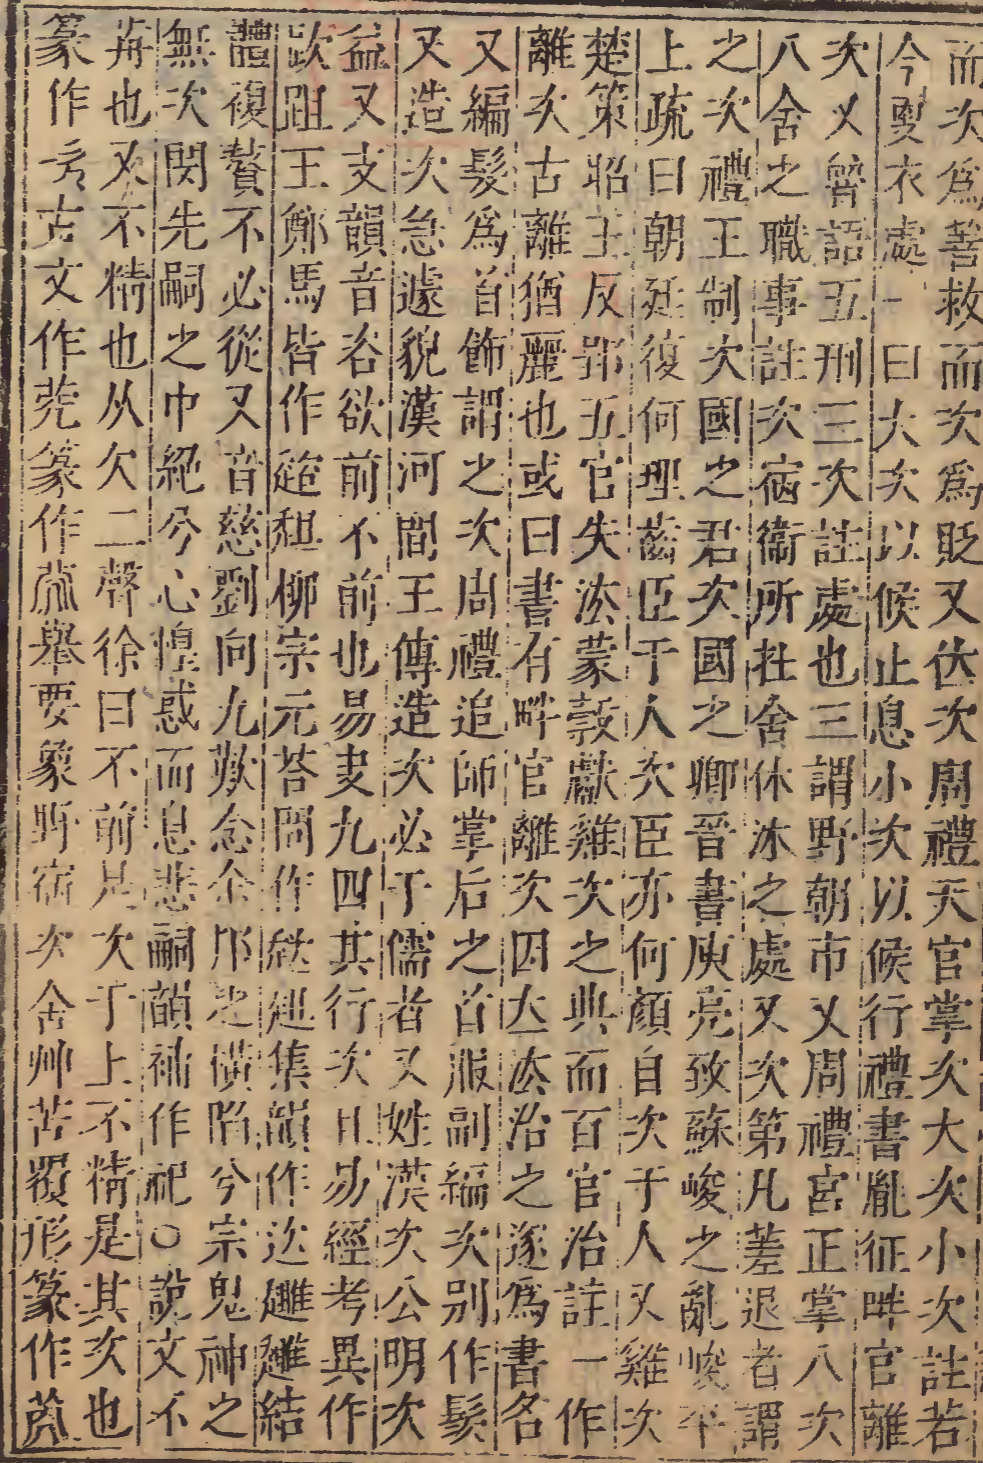 而次爲善救而次爲貶又佽次周禮天官掌次大次小次註若
今更衣處一曰大次以候止息小次以候行禮書胤征畔官離
次又魯語五刑三次註處也三謂野朝市又周禮宮正掌八次
八舍之職事註次宿衞所在舍休沐之處又次第凡差退者謂
之次禮王制次國之君次國之卿晉書庾亮致蘇峻之亂峻平
上疏曰朝廷復何理齒臣于人次臣亦何顏自次于人又雞次
楚策昭王反郢五官失法蒙豰獻雞次之典而百官治註一作
離次古離猶麗也或曰書有畔官離次因大法治之遂爲書名
又編髮爲首飾謂之次周禮追師掌后之首服副編次别作髲
又造次急遽貌漢河間王傳造次必于儒者又姓漢次公明次
益又支韻音咨欲前不前也易夬九四其行次且易經考異作
趑跙王鄭馬皆作趑柤柳宗元荅問作 趄集韻作 趦 結
體複贅不必從又音慈劉向九歎念余邦之橫陷兮宗鬼神之
無次閔先嗣之中絕兮心惶惑而息悲嗣韻補作祀○說文不
前也又不精也从欠二聲徐曰不前是次于上不精是其次也
篆作 古文作 篆作 舉要象野宿次舍艸苫覆形篆作